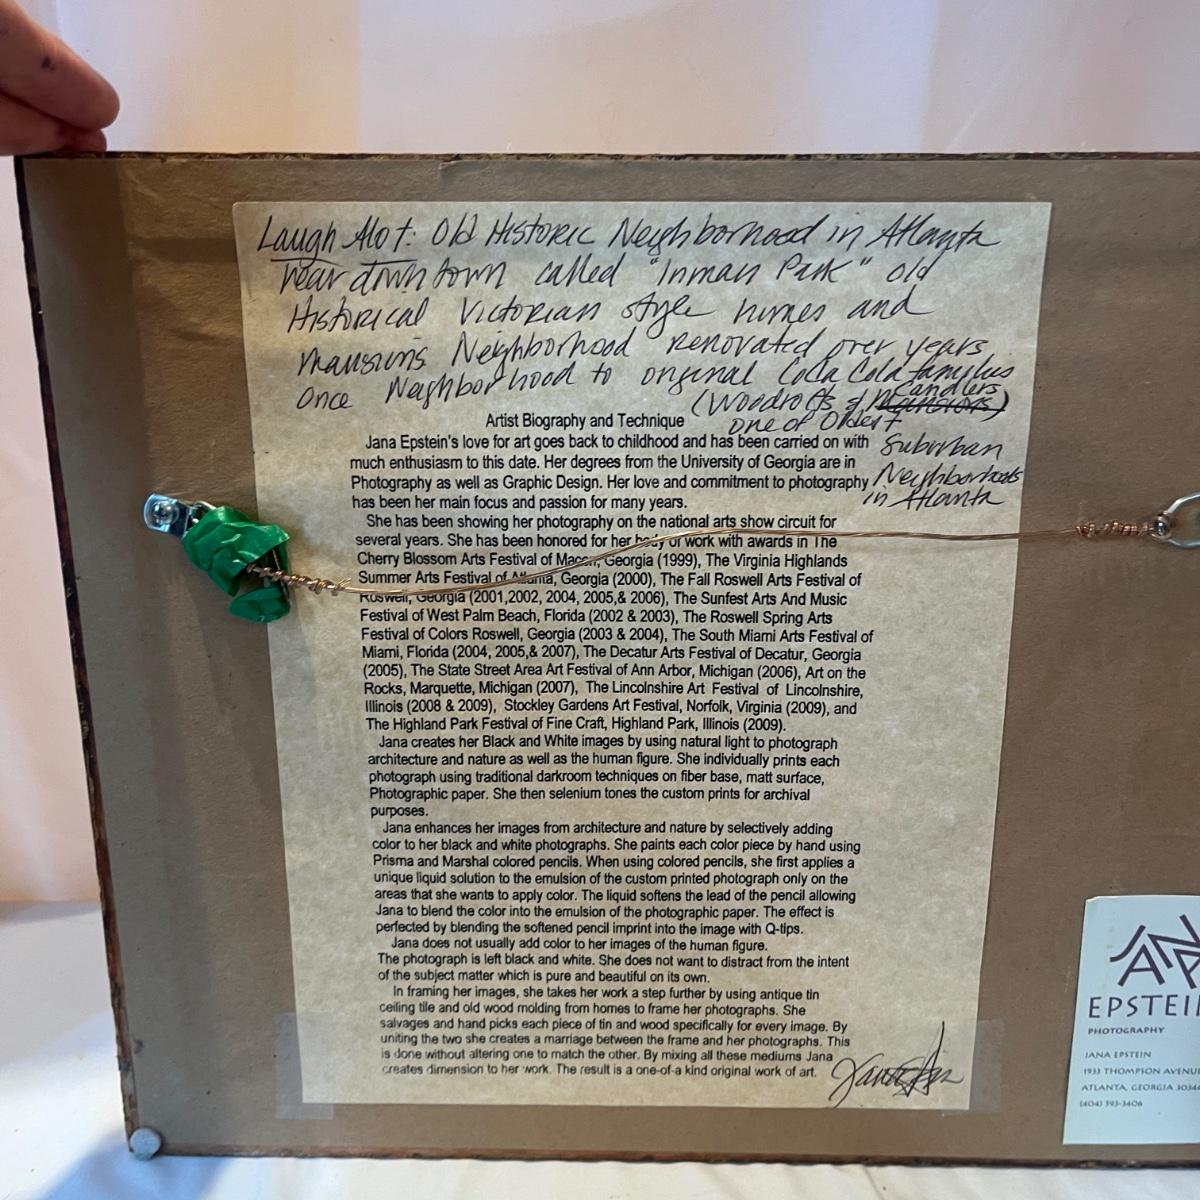 Laugh Alot: Old Historic Neighborhood in Atlanta
near downtown called "Inman Park" old
Historical Victorian style homes and
Mansions Neighborhood renovated over years
Once Neighborhood to original Coca Cola families
(Woodroffs & Candlers
Mansions)
one of oldest
Suburban
Neighborhoods
in Atlanta
Artist Biography and Technique
Jana Epstein's love for art goes back to childhood and has been carried on with
much enthusiasm to this date. Her degrees from the University of Georgia are in
Photography as well as Graphic Design. Her love and commitment to photography
has been her main focus and passion for many years.
She has been showing her photography on the national arts show circuit for
several years. She has been honored for her body of work with awards in The
Cherry Blossom Arts Festival of Macon, Georgia (1999), The Virginia Highlands
Summer Arts Festival of Atlanta, Georgia (2000), The Fall Roswell Arts Festival of
Roswell, Georgia (2001,2002, 2004, 2005,& 2006), The Sunfest Arts And Music
Festival of West Palm Beach, Florida (2002 & 2003), The Roswell Spring Arts
Festival of Colors Roswell, Georgia (2003 & 2004), The South Miami Arts Festival of
Miami, Florida (2004, 2005,& 2007), The Decatur Arts Festival of Decatur, Georgia
(2005), The State Street Area Art Festival of Ann Arbor, Michigan (2006), Art on the
Rocks, Marquette, Michigan (2007), The Lincolnshire Art Festival of Lincolnshire,
Illinois (2008 & 2009), Stockley Gardens Art Festival, Norfolk, Virginia (2009), and
The Highland Park Festival of Fine Craft, Highland Park, Illinois (2009).
Jana creates her Black and White images by using natural light to photograph
architecture and nature as well as the human figure. She individually prints each
photograph using traditional darkroom techniques on fiber base, matt surface,
Photographic paper. She then selenium tones the custom prints for archival
purposes.
Jana enhances her images from architecture and nature by selectively adding
color to her black and white photographs. She paints each color piece by hand using
Prisma and Marshal colored pencils. When using colored pencils, she first applies a
unique liquid solution to the emulsion of the custom printed photograph only on the
areas that she wants to apply color. The liquid softens the lead of the pencil allowing
Jana to blend the color into the emulsion of the photographic paper. The effect is
perfected by blending the softened pencil imprint into the image with Q-tips.
Jana does not usually add color to her images of the human figure.
The photograph is left black and white. She does not want to distract from the intent
of the subject matter which is pure and beautiful on its own.
In framing her images, she takes her work a step further by using antique tin
ceiling tile and old wood molding from homes to frame her photographs. She
salvages and hand picks each piece of tin and wood specifically for every image. By
uniting the two she creates a marriage between the frame and her photographs. This
is done without altering one to match the other. By mixing all these mediums Jana
creates dimension to her work. The result is a one-of-a kind original work of art.
EPSTEIN
PHOTOGRAPHY
JANA EPSTEIN
1933 THOMPSON AVENUE
ATLANTA, GEORGIA 30344
(404) 593-3406